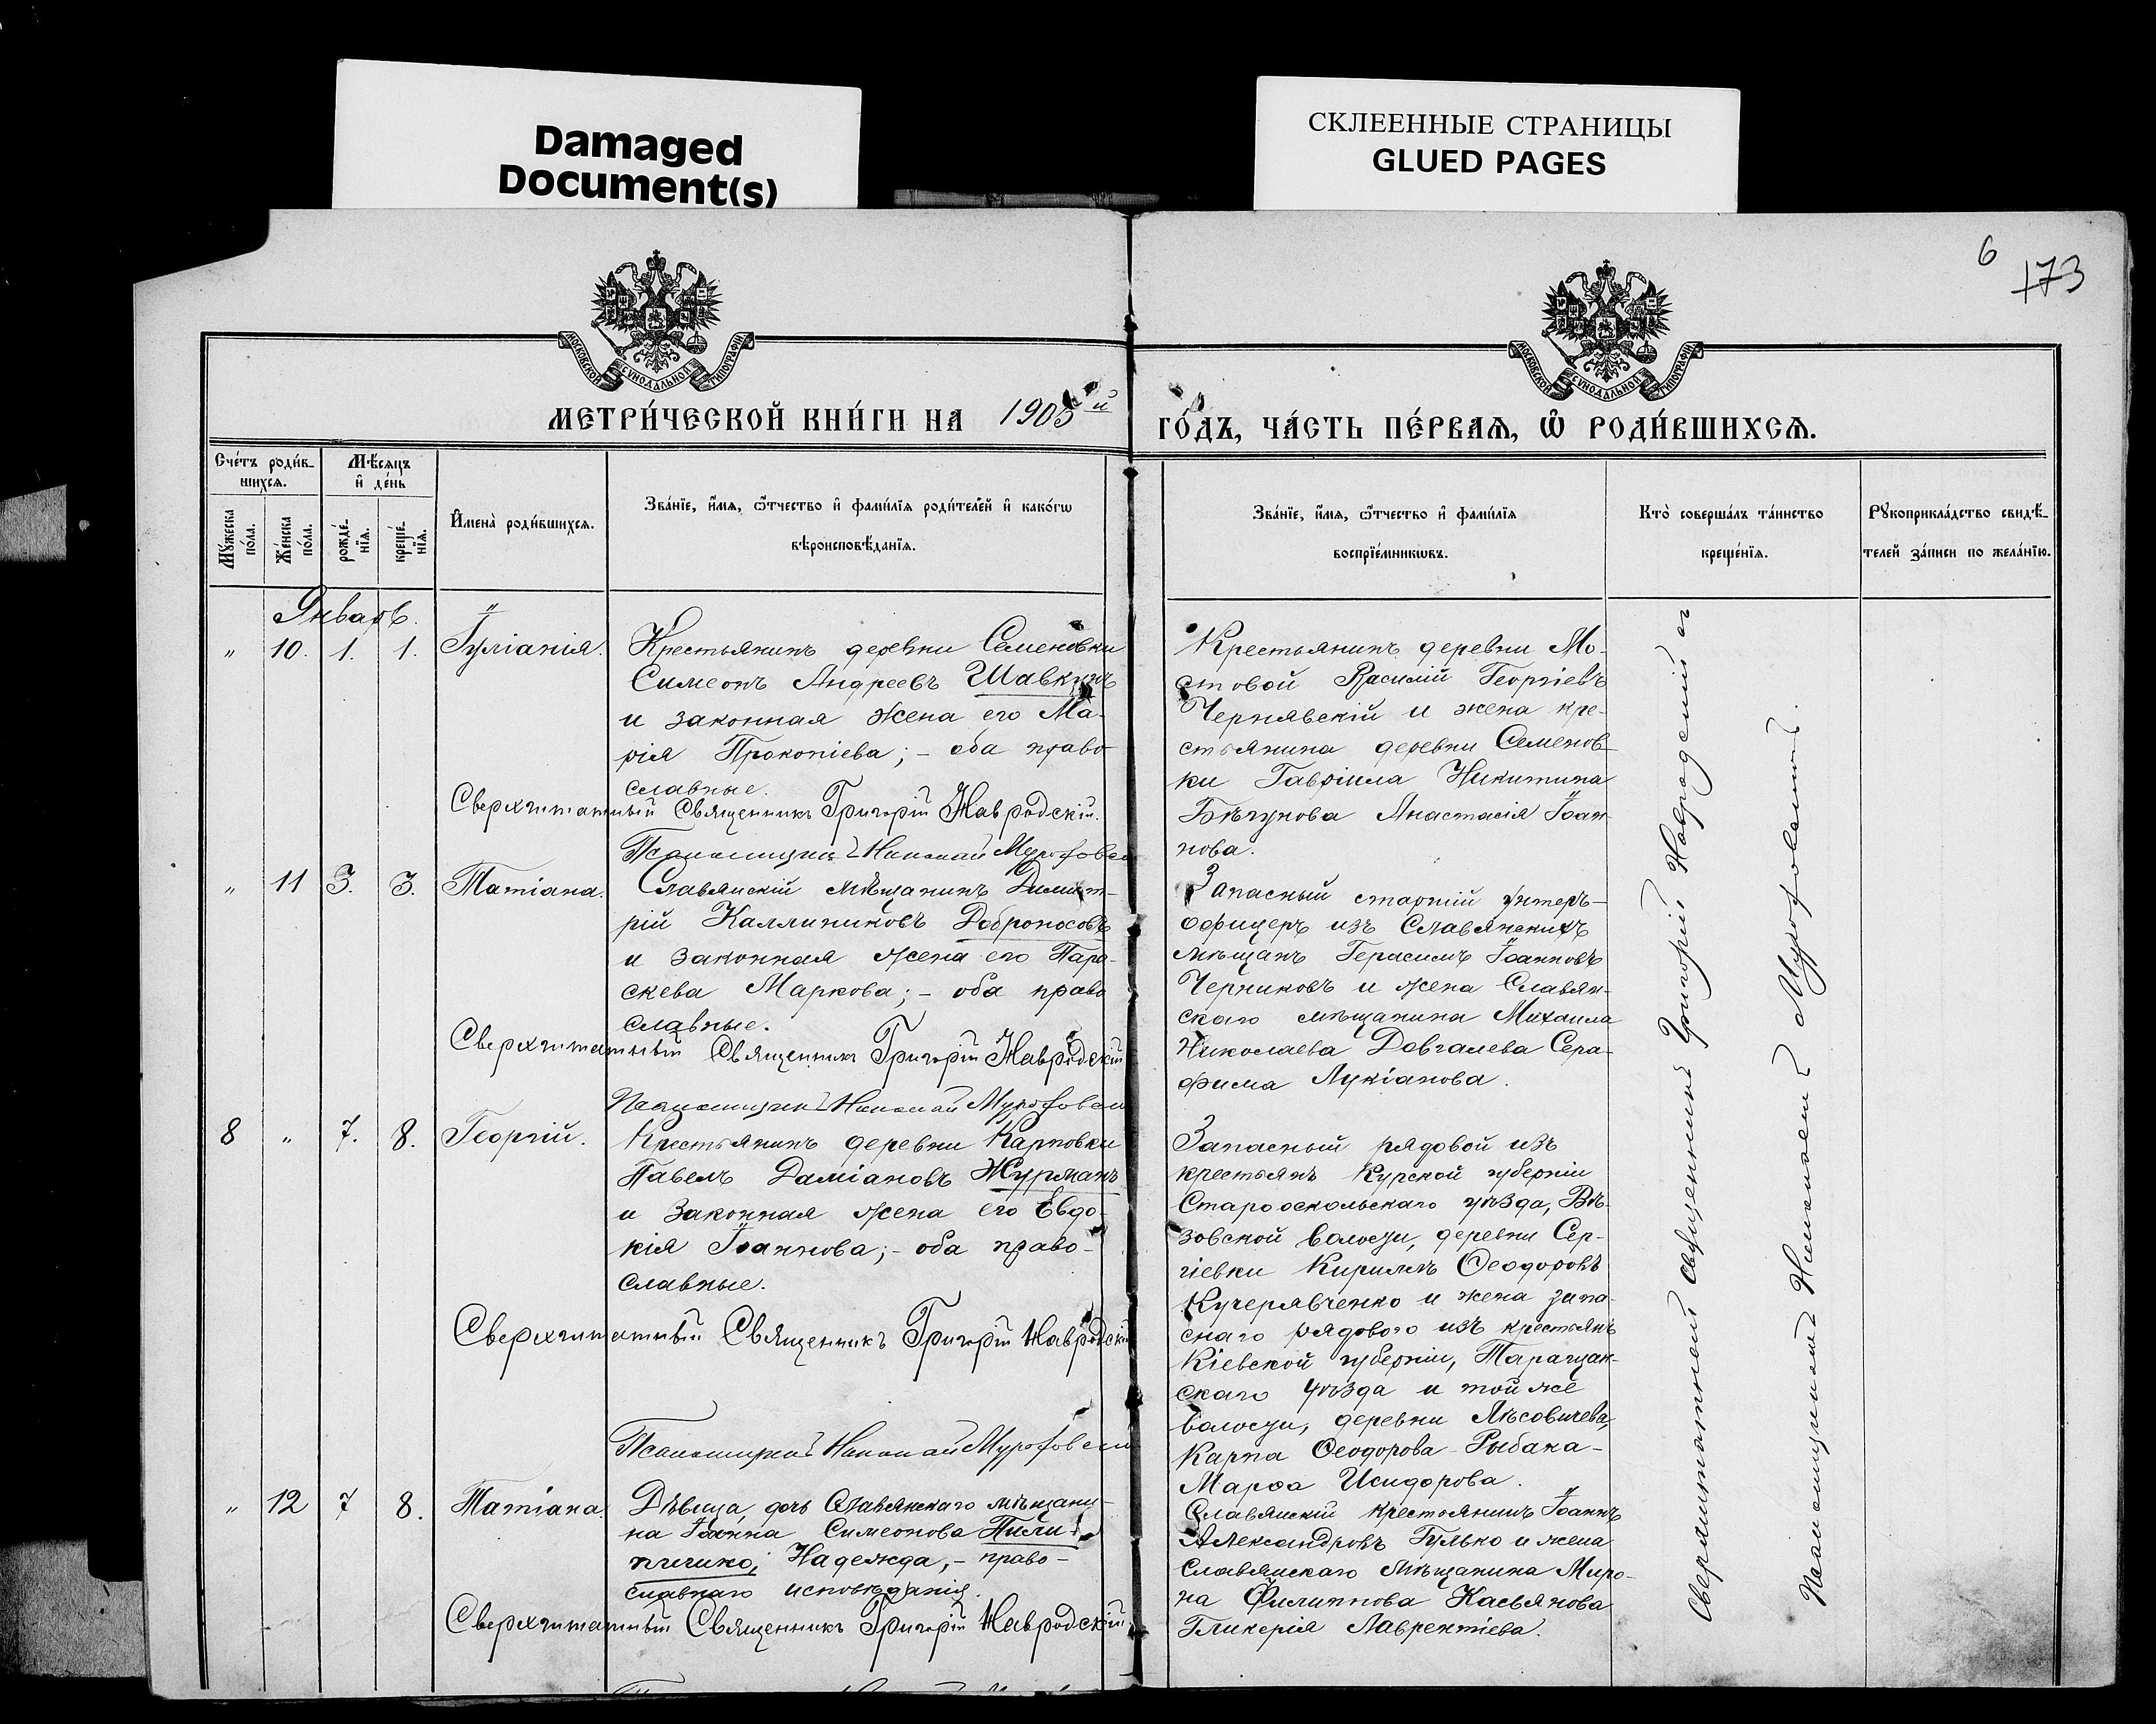 Damaged
Document(s)
СКЛЕЕННЫЕ СТРАНИЦЫ
GLUED PAGES
6
173
МОСКОВСКОЙ СѴНОДАЛЬНОЙ ТИПОГРАФІИ
МОСКОВСКОЙ СѴНОДАЛЬНОЙ ТИПОГРАФІИ
МЕТРИ́ЧЕСКОЙ КНИ́ГИ НА 1905й
ГО́ДЪ, ЧА́СТЬ ПЕ́РВАѦ, Ѡ҆ РОДИ́ВШИХСѦ.
Сче́тъ роди́в-
шихсѧ.
Мѣ́сѧцъ
и҆ де́нь
Мꙋ́жеска
по́ла.
Же́нска
по́ла.
рожде́-
нїѧ.
креще́-
нїѧ.
И҆мена̀ роди́вшихсѧ.
Зва́нїе, и҆́мѧ, ѻ҆́тчество и҆ фами́лїѧ роди́телей и҆ како́гѡ
вѣроисповѣ́данїѧ.
Зва́нїе, и҆́мѧ, ѻ҆́тчество и҆ фами́лїѧ
воспрїе́мникѡвъ.
Кто̀ соверша́лъ та́инство
креще́нїѧ.
Рꙋкоприкла́дство свидѣ́-
телей за́писи по жела́нїю.
Январь.
„ 10. 1. 1. Іуліанія.
Крестьянинъ деревни Семеновки
Симеонъ Андреевъ Шавкунъ
и законная жена его Ма-
рія Прокопіева; - оба право-
славные.
Сверхштатный Священникъ Григорій Навродскій.
Псаломщикъ Николай
Крестьянинъ деревни Мо-
стовой Василій Георгіевъ
Чернявскій и жена кре-
стьянина деревни Семенов-
ки Гавріила Никитина
Бѣгунова Анастасія Іоан-
нова.
„ 11 3. 3. Татіана.
Славянскій мѣщанинъ Димит-
рій Каллиниковъ Доброносовъ
и законная жена его Пара-
скева Маркова; - оба право
славные.
Сверхштатный Священникъ Григорій Навродскій
Псаломщикъ Николай
Запасный старшій унтеръ-
офицеръ изъ Славянскихъ
мѣщанъ Герасимъ Іоанновъ
Черниковъ и жена Славян-
скаго мѣщанина Михаила
Николаева Довгалева Сера-
фима Лукіанова.
8 „ 7. 8. Георгій.
Крестьянинъ деревни Карповки
Павелъ Даміановъ Журманъ
и законная жена его Евдо-
кія Іоаннова; - оба право-
славные.
Сверхштатный Священникъ Григорій Навродскій
Псаломщикъ Николай
Запасный рядовой изъ
крестьянъ Курской губерніи
Старооскольскаго уѣзда, Вя-
зовской волости, деревни Сер-
гіевки Кириллъ Ѳеодоровъ
Кучерявченко и жена запа-
снаго рядового изъ крестьянъ
Кіевской губерніи, Таращан-
скаго уѣзда и той же
волости, деревни Лѣсовичева,
Карпа Ѳеодорова Рыбака -
Марѳа Исидорова.
„ 12 7 8. Татіана.
Дѣвица, дочь Славянскаго мѣщани-
на Іоанна Симеонова Пили-
Надежда, - право-
славнаго исповѣданія.
Сверхштатный Священникъ Григорій Навродскій.
Славянскій крестьянинъ Іоаннъ
Александровъ Гулько и жена
Славянскаго мѣщанина Миро-
на Филиппова Касьянова
Гликерія Лаврентіева.
Сверхштатный Священникъ Григорій Навродскій
Псаломщикъ Николай